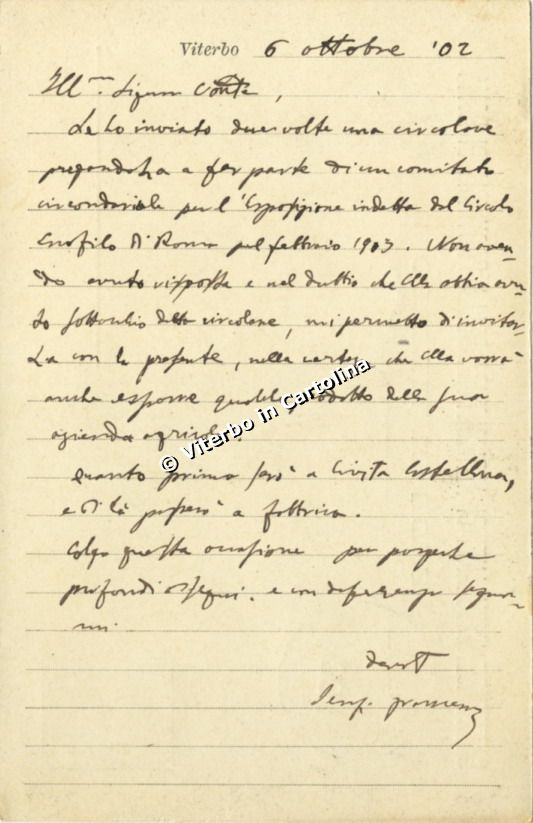 Viterbo 6 ottobre '02
Ill.mo Signor Conte,
Le ho inviato due volte una circolare
pregandola a far parte di un comitato
circondariale per l'Esposizione indetta dal Circolo
Enofilo di Roma pel febbraio 1903. Non aven-
do avuto risposta e nel dubbio che Ella abbia avu-
to sott'occhio detta circolare, mi permetto di invitar-
La con la presente, nella certezza che Ella vorrà
anche esporre qualche prodotto della sua
azienda agricola.
© Viterbo in Cartolina
Quanto prima sarò a Civita Castellana,
e di là passerò a
Colgo questa occasione per porgerle
profondi ossequi. e con deferenza segnar-
mi